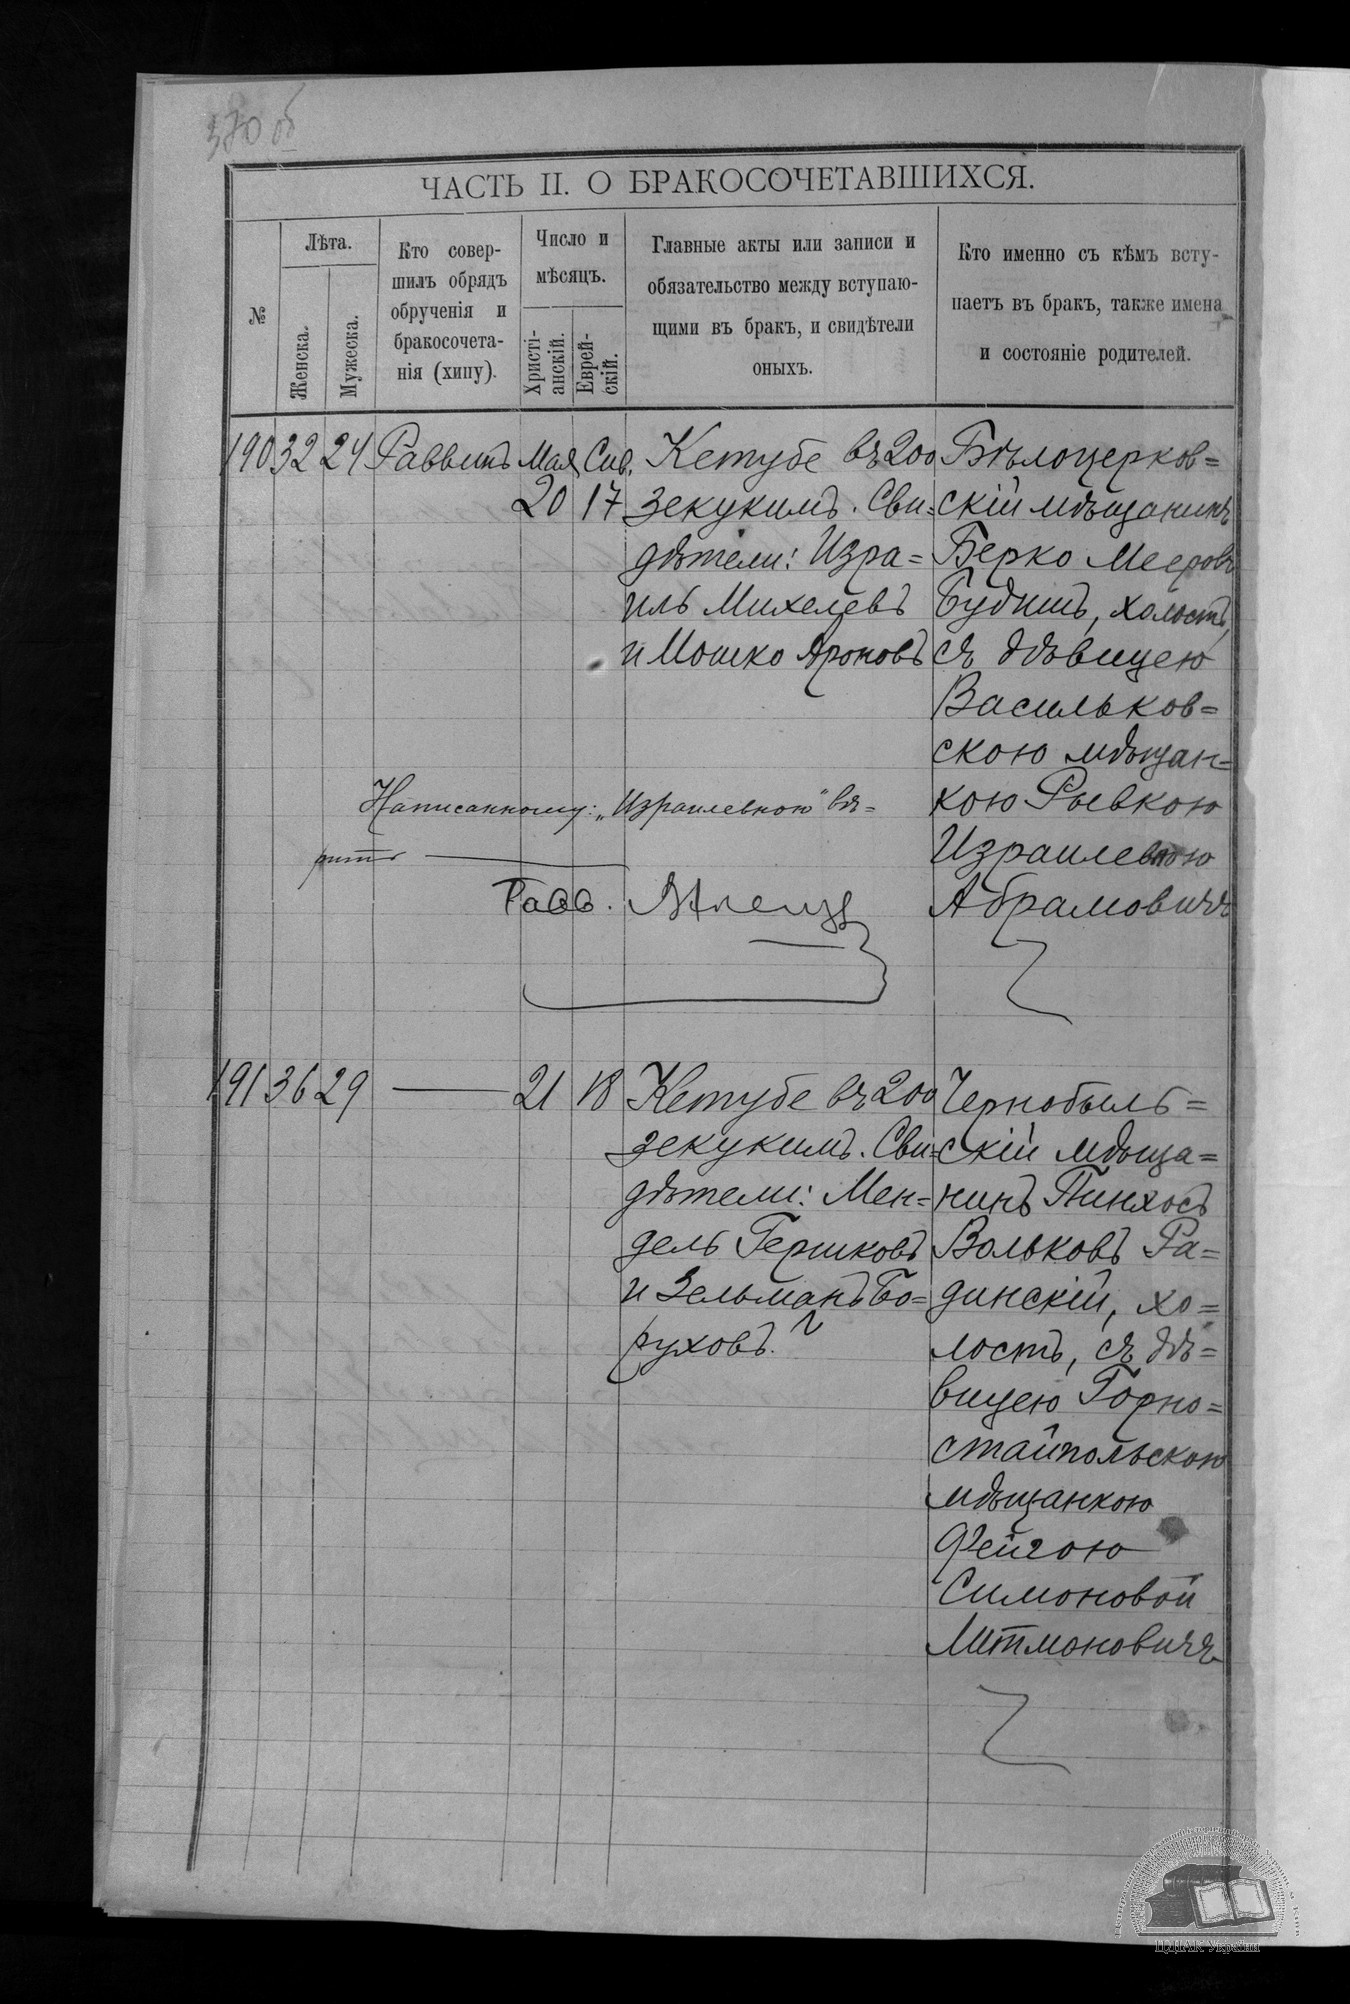 370 об
ЧАСТЬ II. О БРАКОСОЧЕТАВШИХСЯ.
№
Лѣта.
Женска.
Мужеска.
Кто совер-
шилъ обрядъ
обрученія и
бракосочета-
нія (хипу).
Число и
мѣсяцъ.
Христі-
анскій.
Еврей-
скій.
Главные акты или записи и
обязательство между вступаю-
щими въ бракъ, и свидѣтели
оныхъ.
Кто именно съ кѣмъ всту-
паетъ въ бракъ, также имена
и состояніе родителей.
190 32 24 Раввинъ Мая Сив.
20 17
Кетубе въ 200
зекукимъ. Сви=
дѣтели: Изра=
иль Михелевъ
и Мошко Ароновъ
Бѣлоцерков=
скій мѣщанинъ
Берко Мееровъ
Будишъ, холостъ,
съ дѣвицею
Васильков=
скою мѣщан=
кою Рывкою
Израилевною
Абрамовичъ
Написанному: „Израилевною" вѣ=
рить
Равв.
191 36 29 — 21 18
Кетубе въ 200
зекукимъ. Сви=
дѣтели: Мен=
дель Гершковъ
и Зельманъ Бо=
руховъ.
Чернобыль=
скій мѣща=
нинъ Пинхосъ
Вольковъ Ра=
динскій, хо=
лостъ, съ дѣ=
вицею Горно=
стайпольскою
мѣщанкою
Фейгою
Симоновой
Митмоновичъ
ЦДІАК України